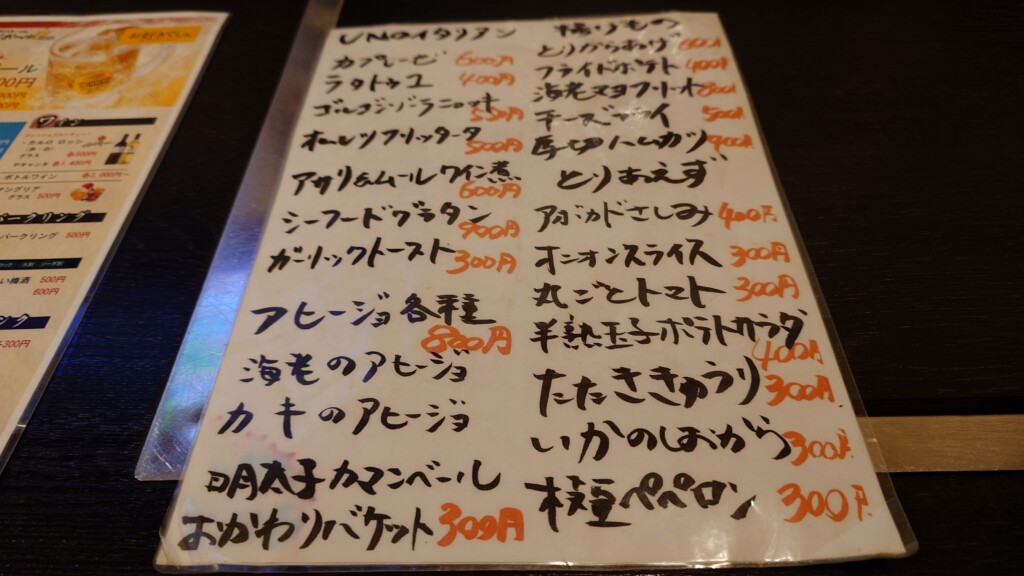 UNOイタリアン
カプレーゼ 600円
ラタトゥユ 400円
ゴルゴンゾーラニョッキ
550円
オムレツフリッタータ
500円
アサリ&ムールワイン煮
600円
シーフードグラタン
900円
ガーリックトースト 300円
アヒージョ各種
800円
海老のアヒージョ
カキのアヒージョ
明太子カマンベール
おかわりバケット 300円
揚げもの
とりからあげ 600円
フライドポテト 400円
海老マヨフリート 800円
チーズフライ 500円
厚切ハムカツ 400円
とりあえず
アボカドさしみ 400円
オニオンスライス 300円
丸ごとトマト 300円
半熟玉子ポテトサラダ
400円
たたききゅうり 300円
いかのしおから 300円
枝豆ペペロン 300円
ワイン
・カルロ ロッシ
グラス 各300円
デキャンタ 各1,400円
ボトルワイン
グラス 500円
パークリング 500円
い梅酒 500円
600円